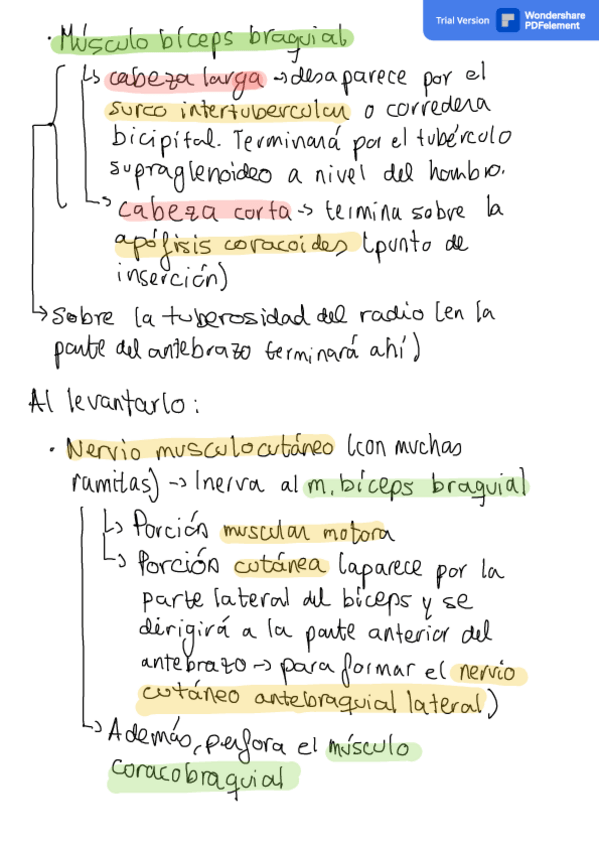 Trial Version
Wondershare
PDFelement
· Músculo bíceps braquial
↳ cabeza larga → desaparece por el
surco intertubercular o corredera
bicipital. Terminará por el tubérculo
supraglenoideo a nivel del hombro.
↳ cabeza corta → termina sobre la
apófisis coracoides (punto de
inserción)
↳ Sobre la tuberosidad del radio (en la
parte del antebrazo terminará ahí)
Al levantarlo:
· Nervio musculocutáneo (con muchas
ramitas) → Inerva al m. bíceps braquial
↳ Porción muscular motora
↳ Porción cutánea (aparece por la
parte lateral del bíceps y se
dirigirá a la parte anterior del
antebrazo → para formar el nervio
cutáneo antebraquial lateral)
↳ Además, perfora el músculo
coracobraquial